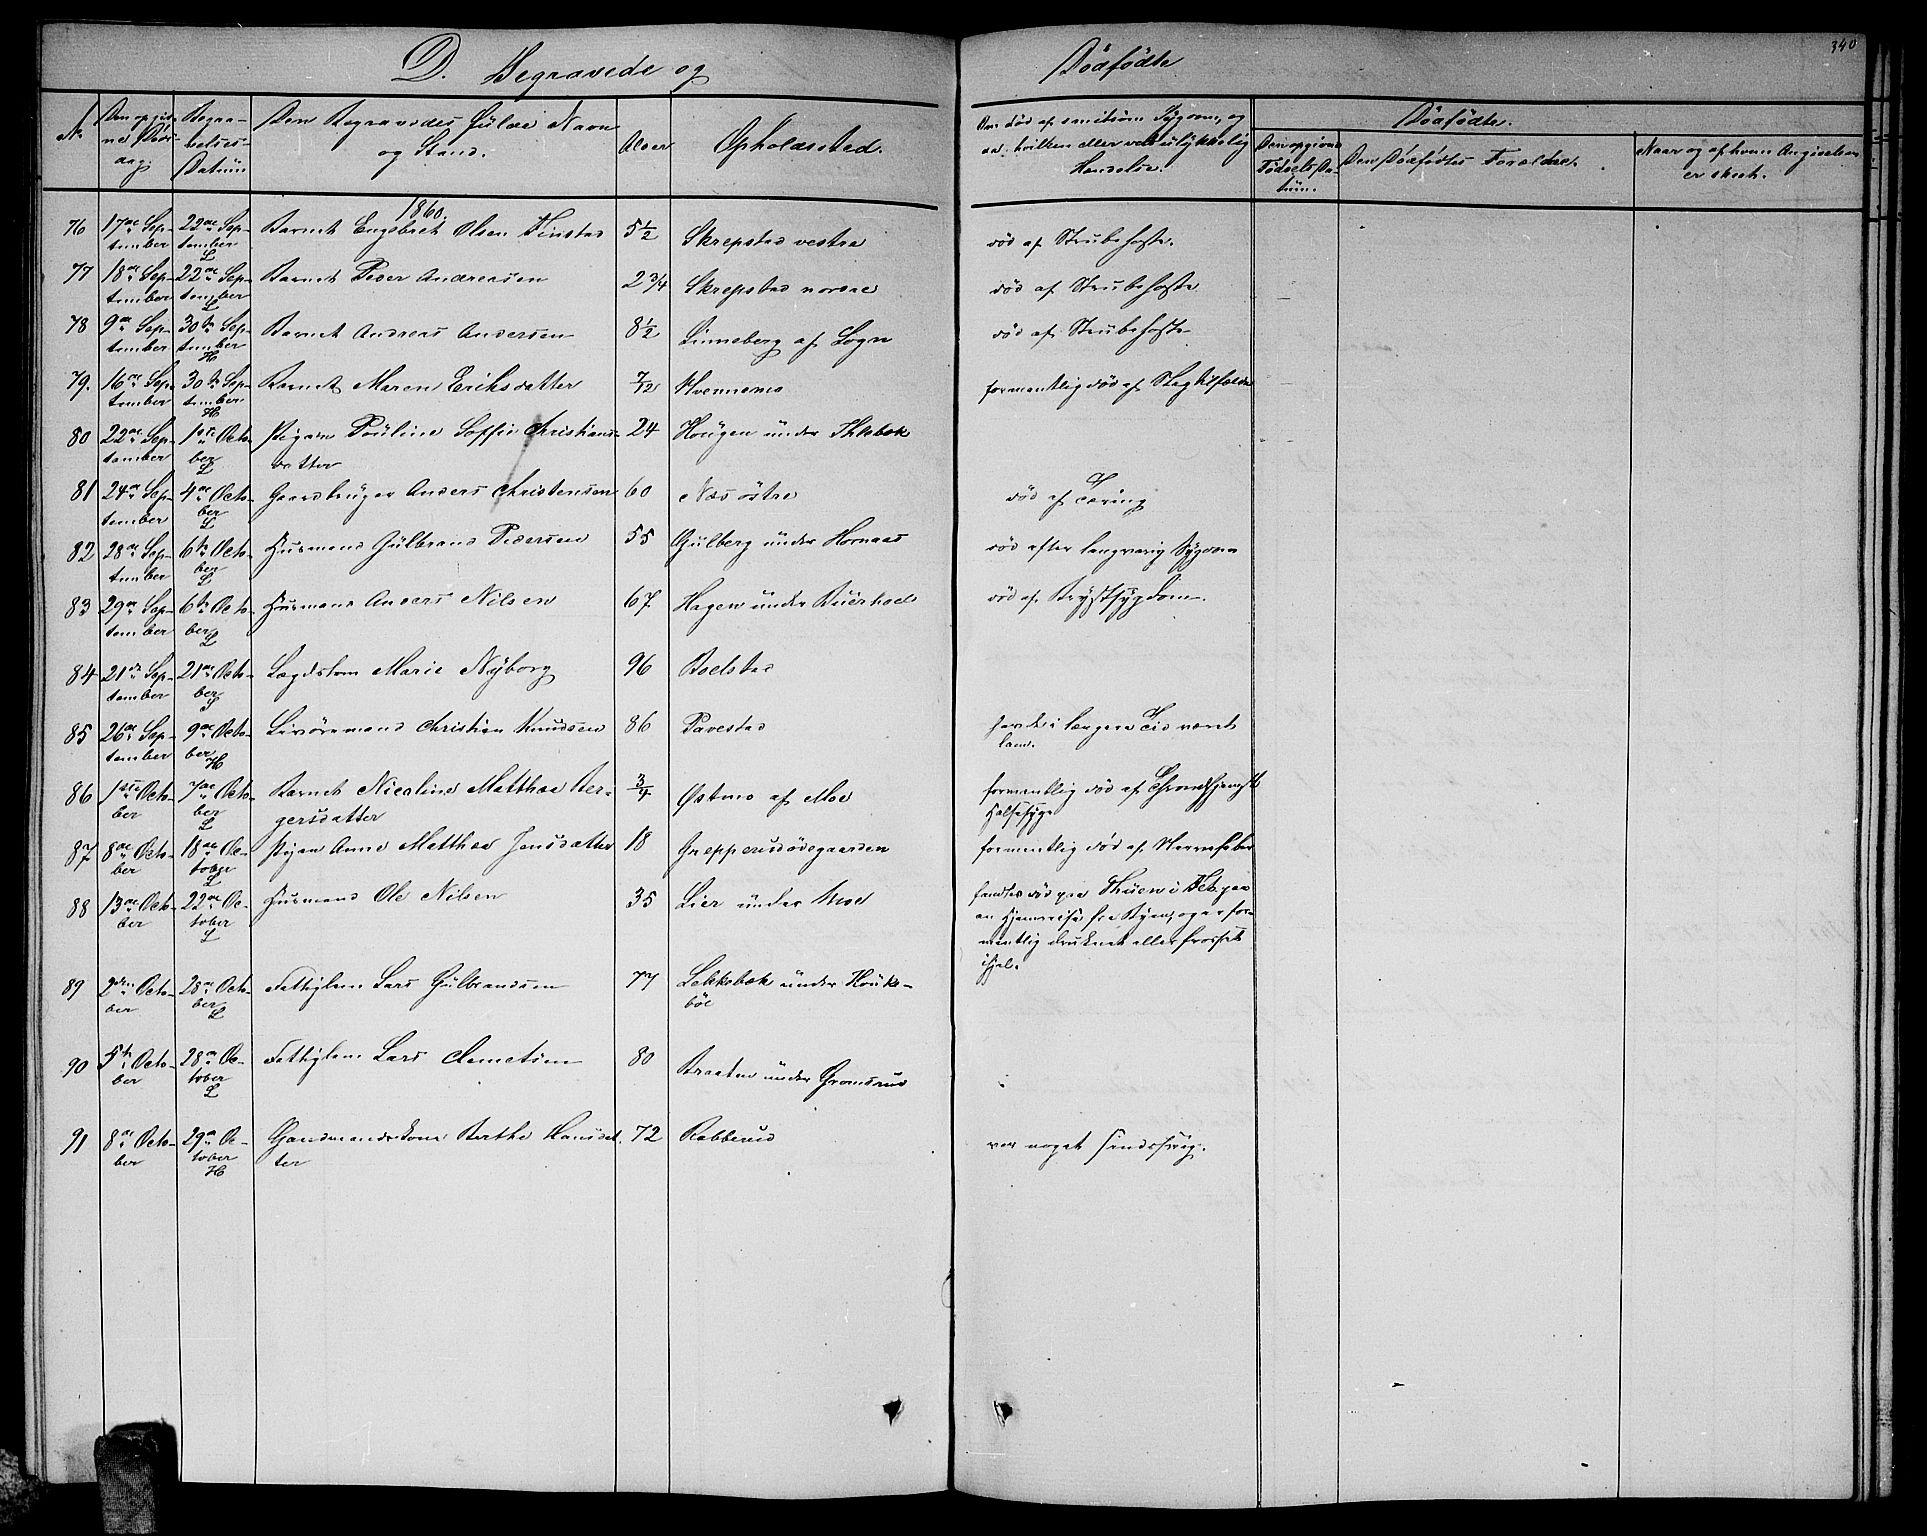 340
D. Begravede og Dödfödte
No.
Den opgivne Döds Dag
Begravelses Datum
Den Begravedes fulde Navn og Stand.
Alder
Opholdssted.
Döde af smitsom Sygdom, og
hvilken eller ved ulykkelig
Hændelse.
Dödfödte.
Den opgivne Födsels Datum.
Den Dödfödtes Forældre.
Naar og af hvem Angivelsen
er skeet.
1860.
76 17de September 22de September L Barnet Engebret Olsen Finstad 5½ Skrepstad vestre död af Strubehoste.
77 18de September 22de September L Barnet Peder Andreassen 2¾ Skrepstad nordre död af Strubehoste
78 9de September 30te September H Barnet Andreas Andersen 8½ Linneberg af Sogn död af Strubehoste
79. 16de September 30te September H Barnet Maren Eriksdatter 7/12 Kvennemo formentlig död af Slagtilfælde
80 22de September 1ste October L Pigen Pouline Soffie Christiansdatter 24 Hougen under Ihlebæk
81 24de September 4de October L Gaardbruger Anders Christensen 60 Næs östre död af Tæring
82 28de September 6te October L Huusmand Gulbrand Pedersen 55 Gulberg under Hornaas död efter langvarig Sygdom
83 29de September 6te October L Huusmand Anders Nilsen 67. Hagen under Buerhoel död af Brystsygdom.
84 21de September 21de October S Lægdslem Marie Nyborg 96 Boelstad
85 26de September 9de October H Livöremand Christian Knudsen 86 Pavestad havde i længere Tid været
lam.
86 1ste October 7de October L Barnet Nicoline Matthea Bergersdatter 3/4 Östmo af Moe formentlig död af
Halssyge
87 8de October 18de October L Pigen Anne Matthea Jensdatter 18 Grepperudödegaarden formentlig död af Nervefeber
88 13de October 22de October L Huusmand Ole Nilsen 35 Lier under Moe fandtes död paa
en Hjemreise fra Byen, og er formentlig druknet eller frosset
ihjel.
89 2den October 28de October L Fattiglem Lars Gulbrandsen 77 Lekkebæk under Houkeböl
90 5te October 28de October L Fattiglem Lars Clemetsen 80 Braaten under Gromsrud
91 8de October 29de October H Gaardmandskone Berthe Hansdatter 72 Rabberud var noget sindssvag.